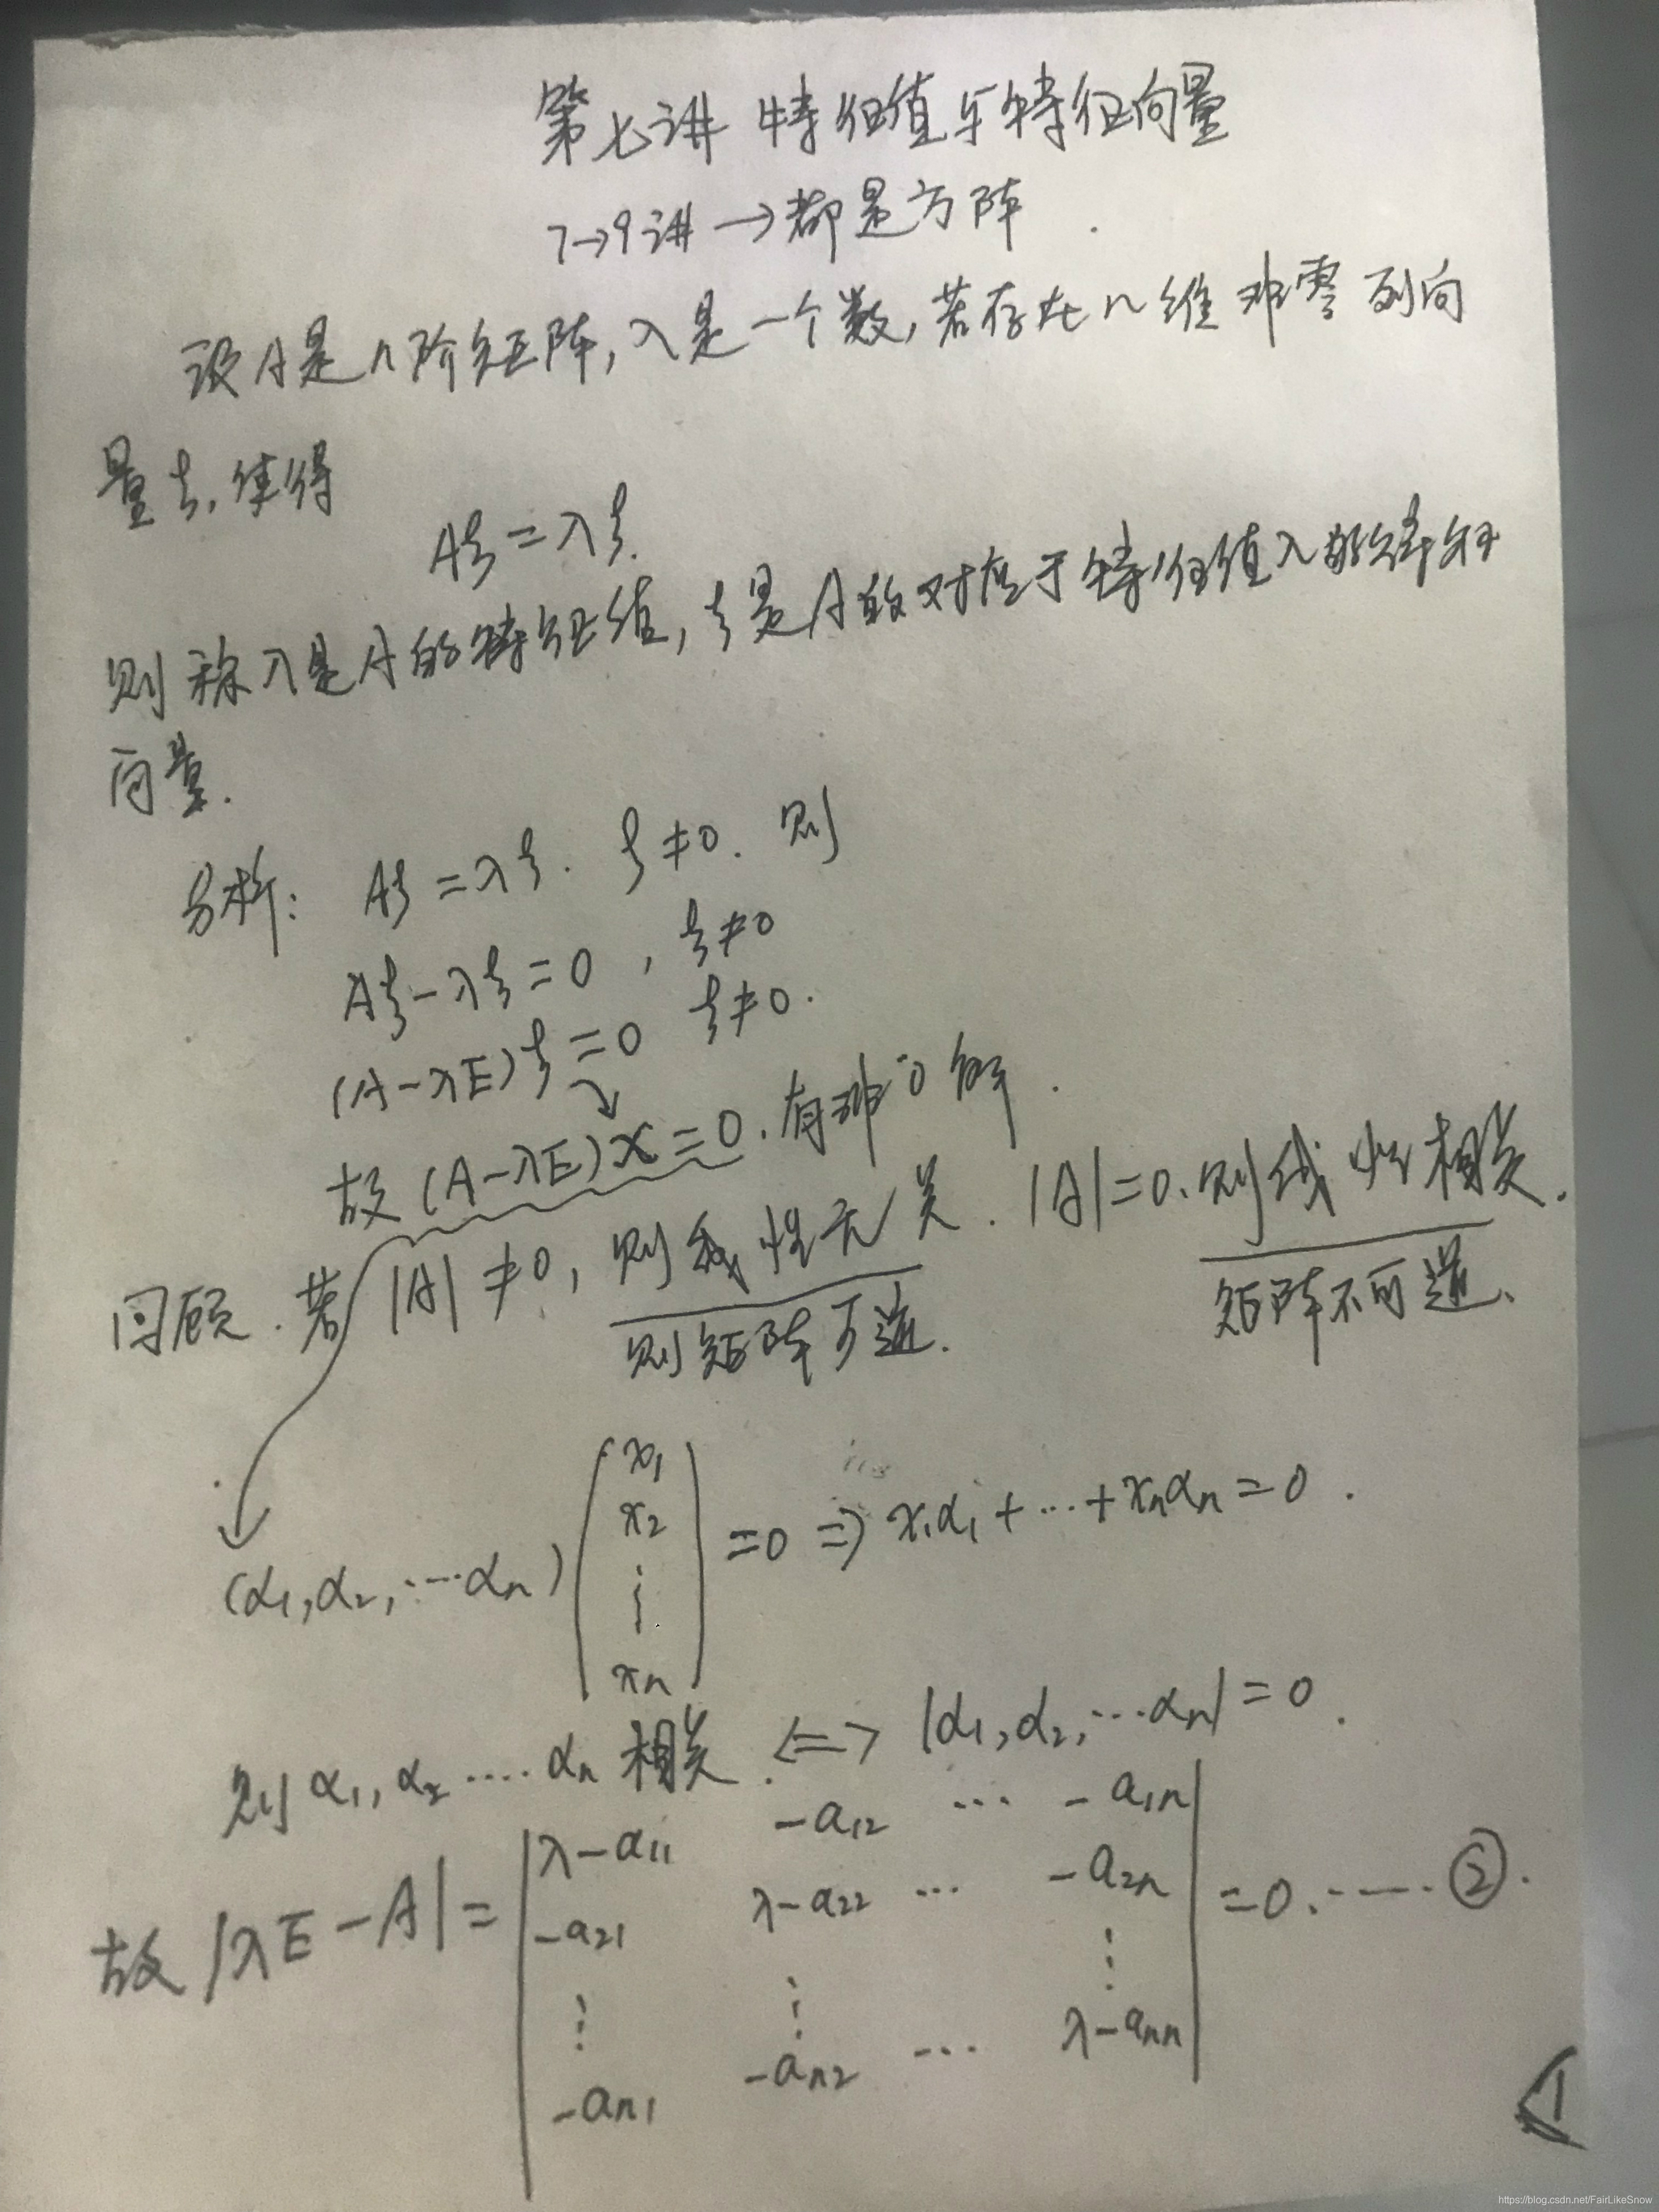 第七讲 特征值与特征向量
7→9讲→都是方阵
设A是n阶矩阵,λ是一个数,若存在n维非零列向
量ξ,使得
Aξ=λξ.
则称λ是A的特征值,ξ是A的对应于特征值λ的特征
向量.
分析: Aξ=λξ. ξ≠0. 则
Aξ-λξ=0, ξ≠0
(A-λE)ξ=0 ξ≠0.
故(A-λE)x=0.有非0解.
回顾.若|A|≠0,则线性无关.|A|=0.则线性相关.
则矩阵可逆. 矩阵不可逆.
(α₁,α₂,…αₙ)(x₁ x₂ ⋮ xₙ)=0⇒x₁α₁+…+xₙαₙ=0.
则α₁,α₂....αₙ相关.⇔|α₁,α₂,…αₙ|=0.
故|λE-A|=|λ-a₁₁ -a₁₂ … -a₁ₙ|
-a₂₁ λ-a₂₂ … -a₂ₙ =0.……②.
⋮ ⋮ ⋮
-aₙ₁ -aₙ₂ … λ-aₙₙ
1
https://blog.csdn.net/FairLikeSnow